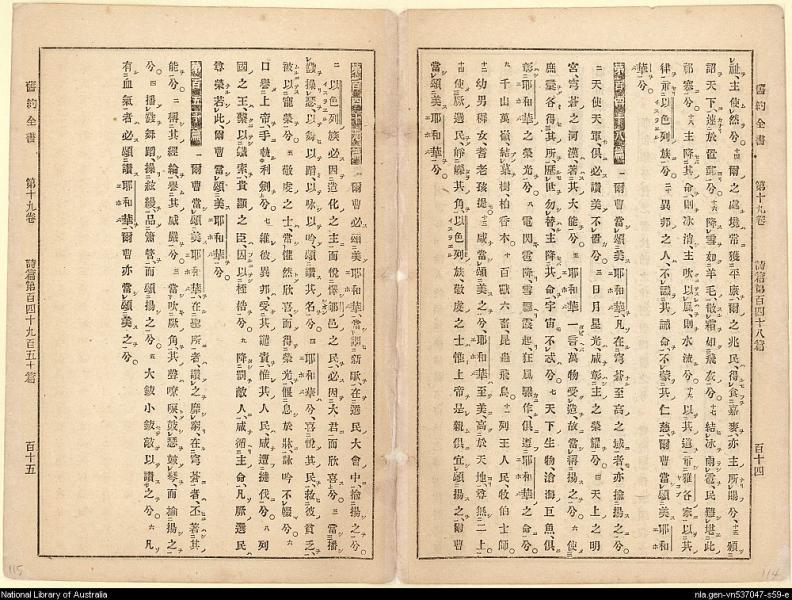 舊約全書 第十九卷 詩篇第百四十八篇 百十四
祉、主使然兮。十四 爾之處境常獲平康、爾之兆民、得食嘉麥、亦主所賜兮、十五 頒
詔天下、速於置郵兮、十六 降雪如羊毛、散霜如飛灰兮、十七 結冰雨雹、民難堪此
祁寒兮、十八 主降其命、則冰消、主吹以風、則水流兮、十九 以其道示雅各家、以其
律示以色列族兮、二十 異邦之人、不識其誡命、不蒙其仁慈、爾曹當頌美耶和
華兮。
第百四十八篇 一 爾曹當頌美耶和華、凡在穹蒼至高之域者、亦揄揚之兮、
二 天使天軍、俱必讚美不置兮、三 日月星光、咸彰主之榮耀兮、四 天上之明
宮、穹蒼之河漢、著其大能兮、五 耶和華一言、萬物受造、故當稱揚之兮、六 使
庶彙各得其所、歷世勿替、主降其命、宇宙不忒兮、七 天下生物、滄海巨魚、俱
彰耶和華之榮光兮、八 電閃雹降、雪飄霧起、狂風驟作、俱遵耶和華之命兮、
九 千山萬嶺、結菓樹、柏香木、十 百獸六畜昆蟲飛鳥、十一 列王人民、牧伯士師、
十二 幼男穉女、耆老孩提、十三 咸當頌美之兮、耶和華至美、高於天地、尊無二上、
十四 使厥選民、崢嶸其角、以色列族、敬虔之士、惟上帝是親、俱宜頌揚之、爾曹
當頌美耶和華兮。
第百四十九篇 一 爾曹必頌美耶和華、當謳新歌、在選民大會中、揄揚之兮、
二 以色列族、必因造化之主而悅懌、郇邑之民、必因大君而欣喜兮、三 當播
鼗操瑟、以舞以蹈、以咏以吟、頌讚其名兮、四 耶和華兮、喜悅其民、救彼貧乏、
被以寵榮兮、五 敬虔之士、當懽然欣喜、而得榮光、偃息於牀、詠吟不輟兮、六
口譽上帝、手執利劍兮、七 維彼異邦、受其譴責、惟其人民、咸遭撻伐兮、八 列
國之王、縶以鐵索、貴顯之臣、囚以桎梏兮、九 降罰敵人、咸循主命、凡厥選民、
尊榮若此、爾曹當頌美耶和華兮。
第百五十篇 一 爾曹當頌美耶和華、在聖所者、讚之靡窮、在穹蒼者、丕著其
能兮、二 稱其經綸、譽其威嚴兮、三 當吹厥角、其聲嘹喨、鼓瑟鼓琴、而揄揚之
兮、四 播鼗舞蹈、操絃縵、品簫管、而頌揚之兮、五 大鈸小鈸、敲以讚之兮、六 凡
有血氣者、必頌讚耶和華、爾曹亦當頌美之兮。
舊約全書 第十九卷 詩篇第百四十九百五十篇 百十五
115
114
National Library of Australia
nla.gen-vn537047-s59-e